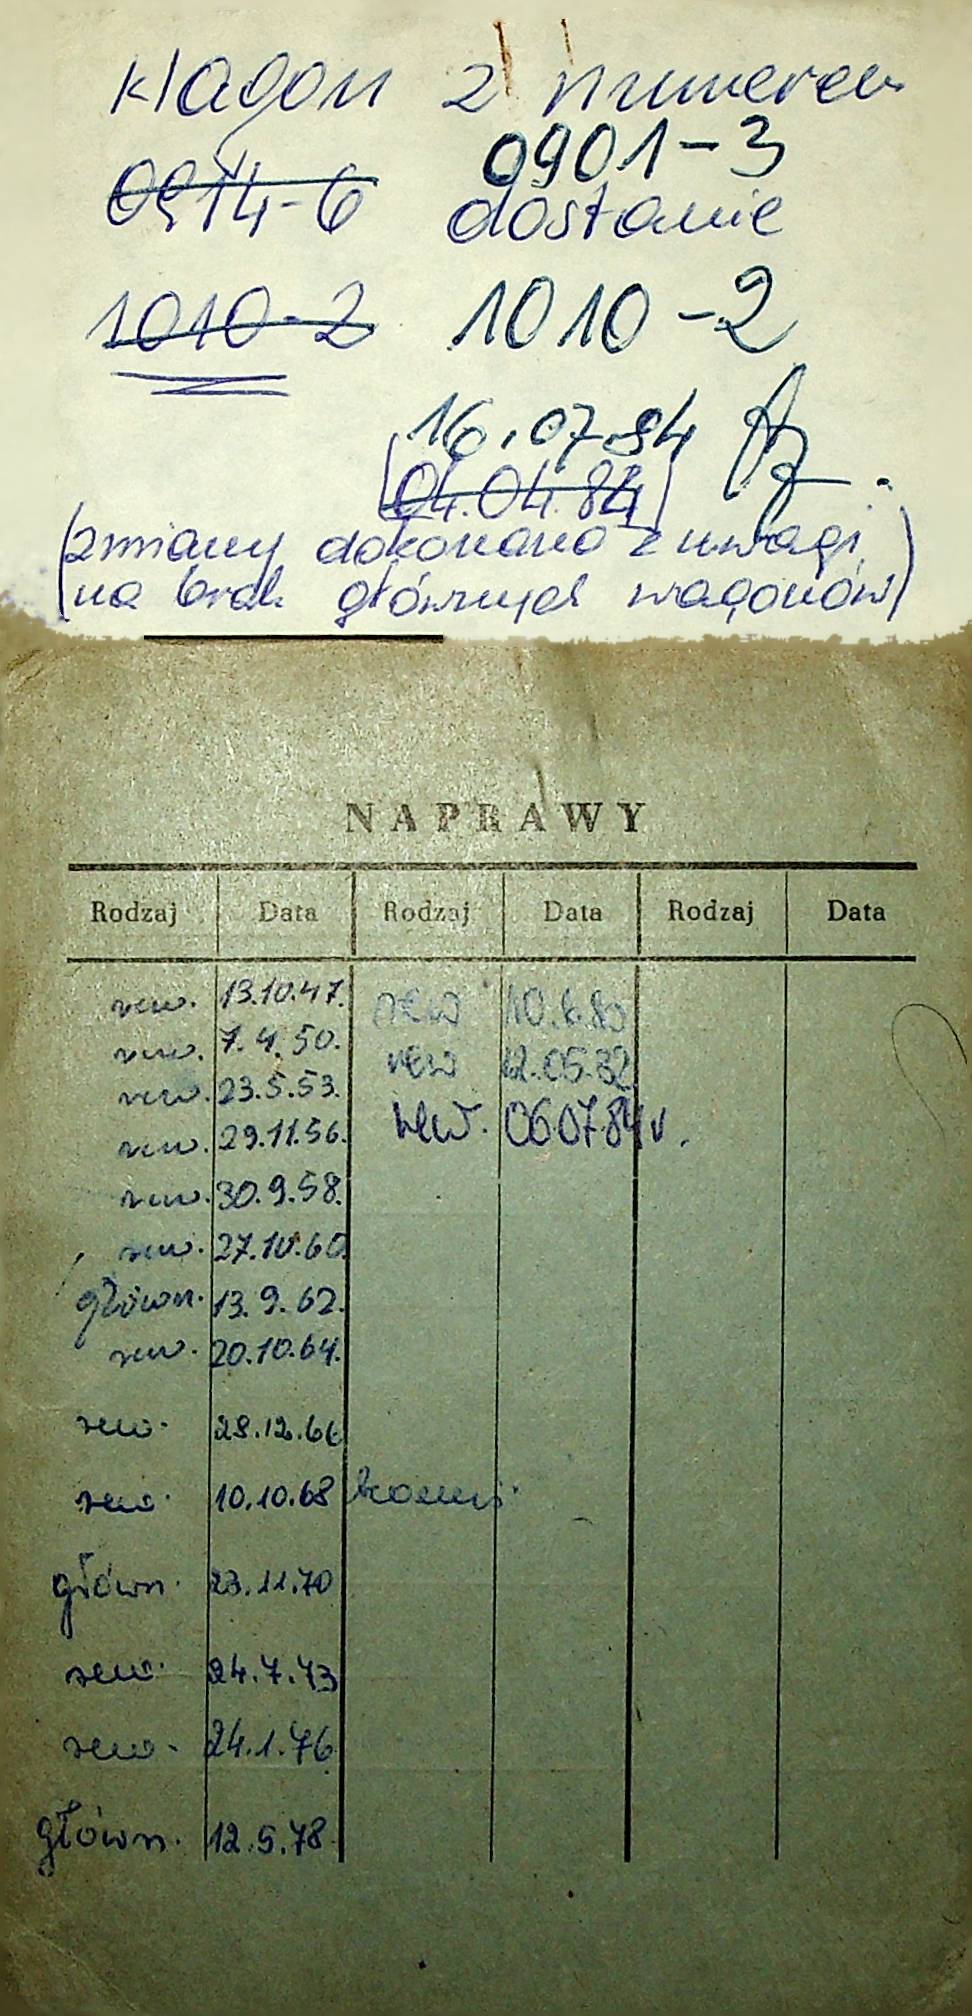 Wagon z numerem
0914-6 0901-3
dostanie
1010-2 1010-2
16.07.84
(04.04.84)
(zmiany dokonano z uwagi
na brak głównych wagonów)
NAPRAWY
Rodzaj Data Rodzaj Data Rodzaj Data
rew. 13.10.47. rew 10.6.80
rew. 7.4.50. rew 12.05.82
rew. 23.5.53. rew. 06.07.84 r.
rew. 29.11.56.
rew. 30.9.58.
rew. 27.10.60.
główn. 13.9.62.
rew. 20.10.64.
rew. 28.12.66
rew. 10.10.68
główn. 23.11.70
rew. 24.7.73
rew. 24.1.76
główn. 12.5.78